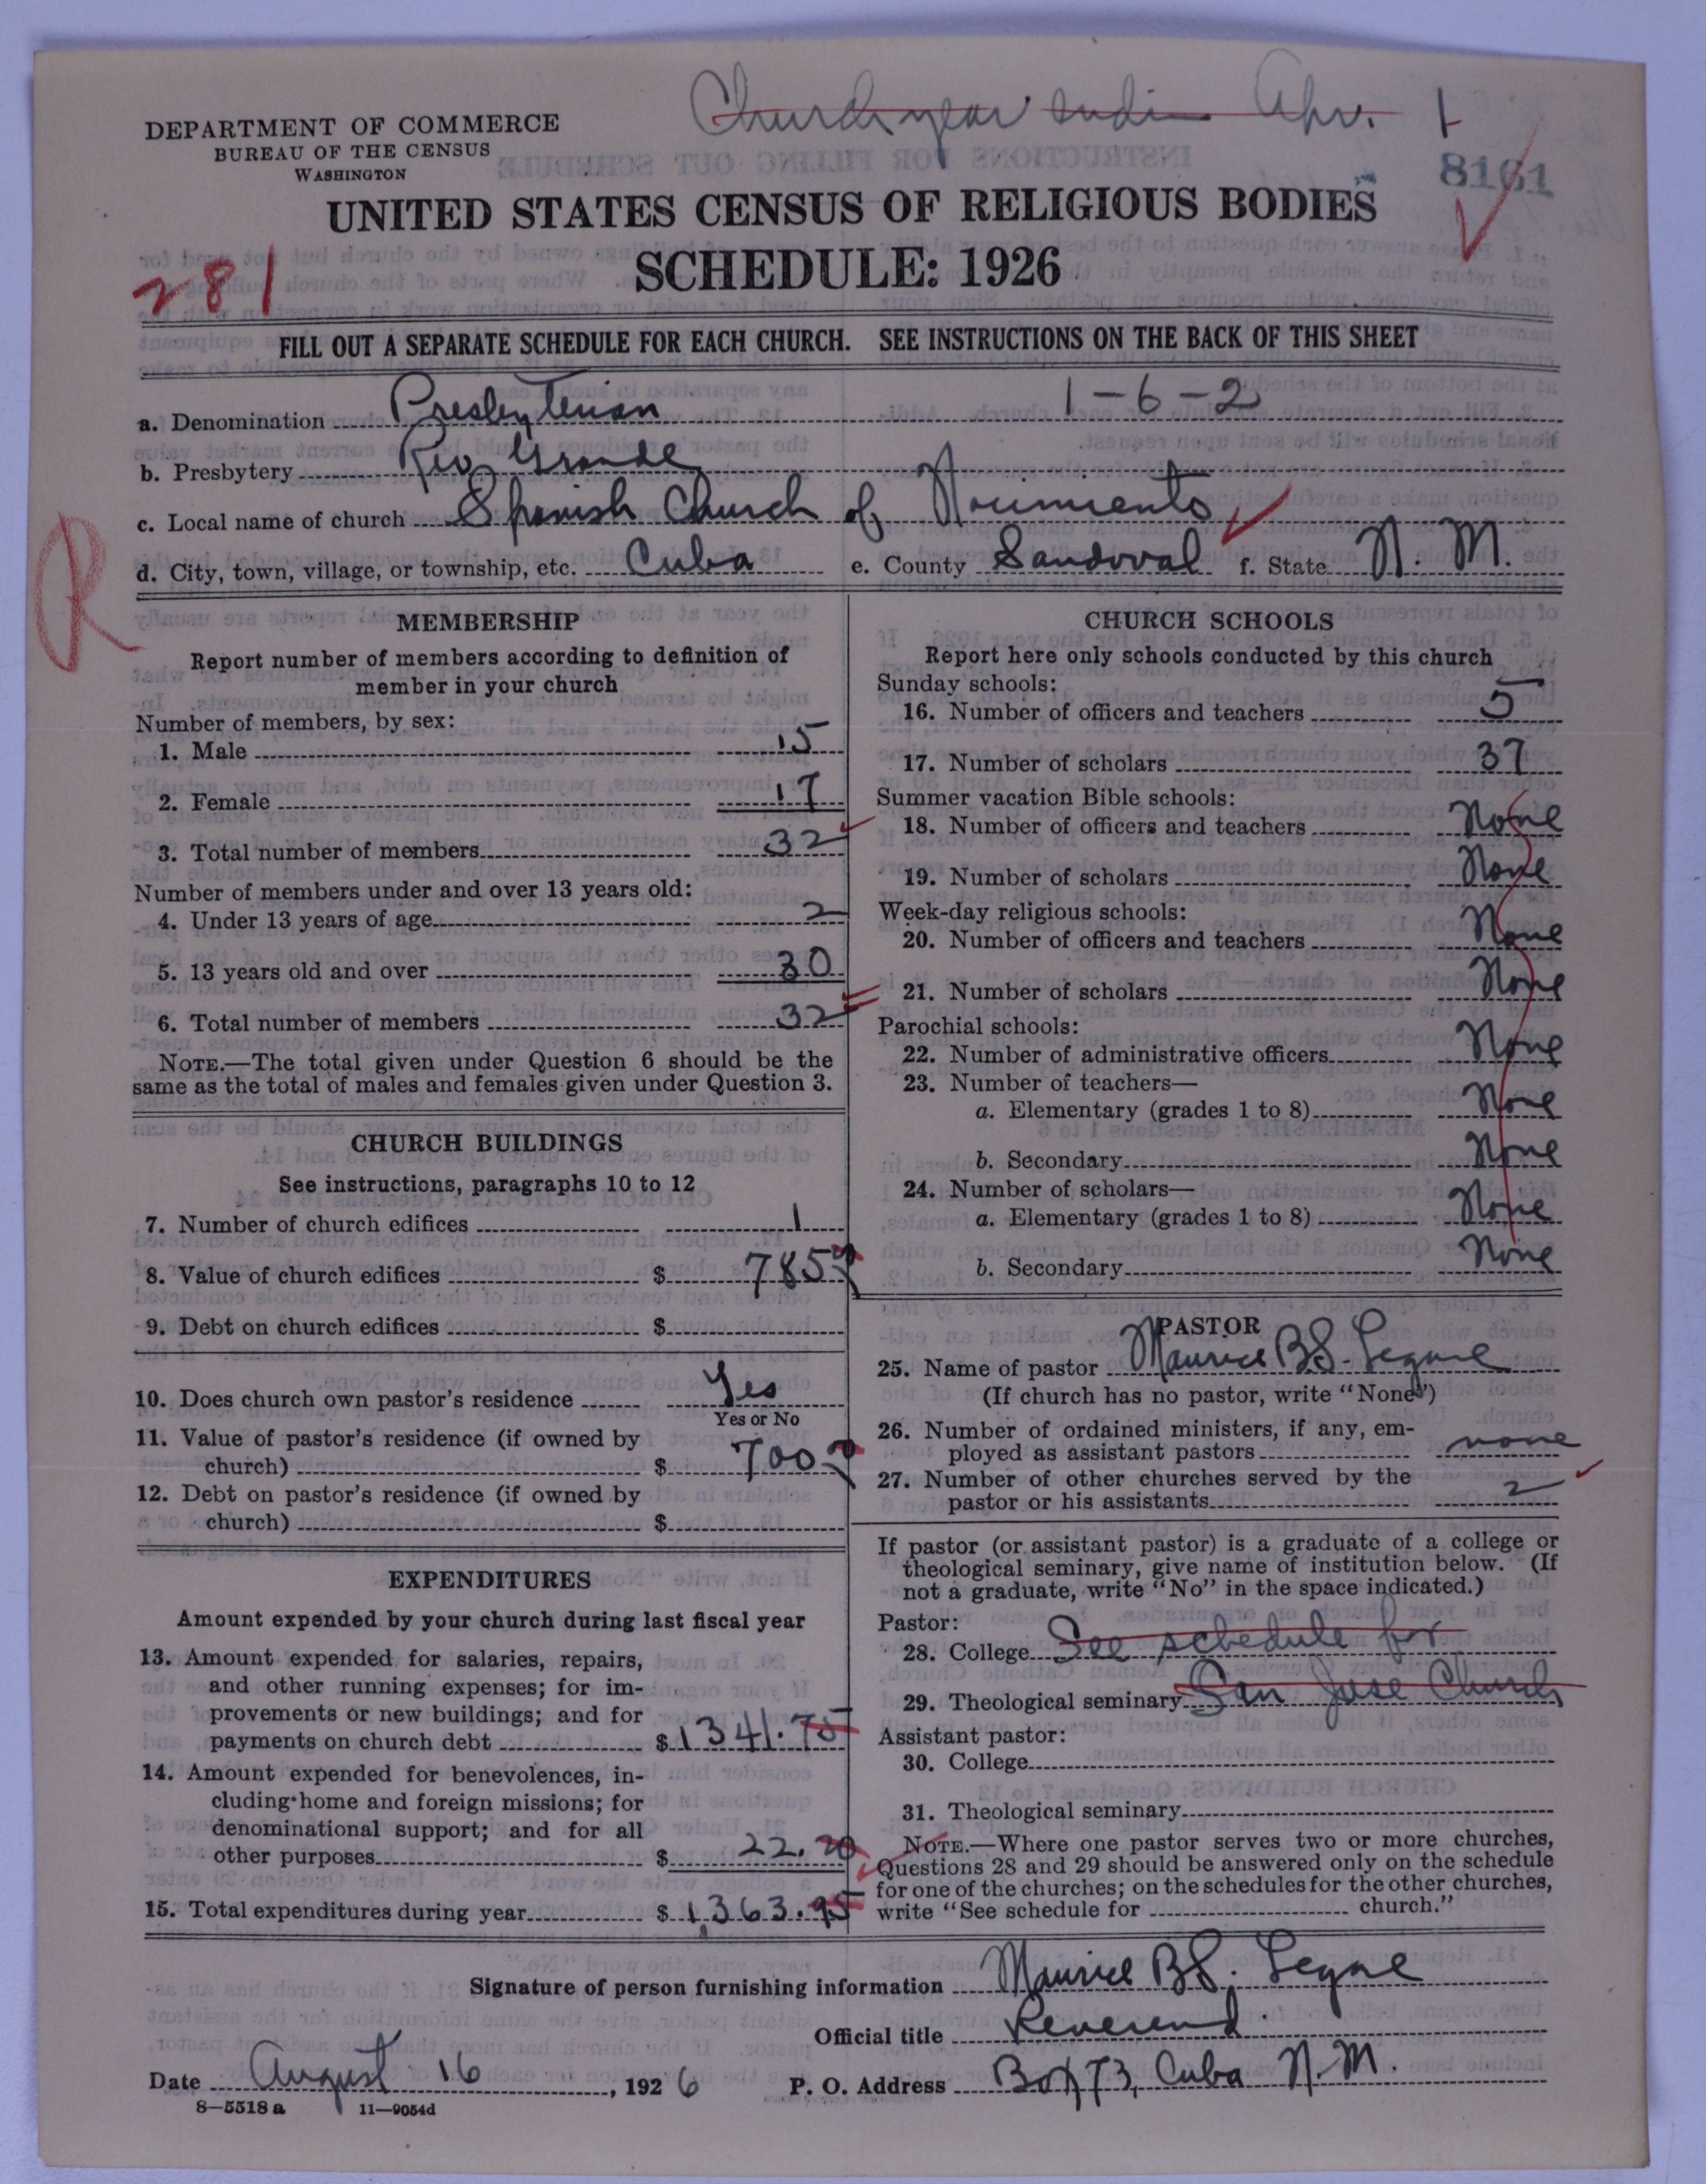 Church year ends Apr. 1
DEPARTMENT OF COMMERCE
BUREAU OF THE CENSUS
WASHINGTON
8161
UNITED STATES CENSUS OF RELIGIOUS BODIES
SCHEDULE: 1926
281
FILL OUT A SEPARATE SCHEDULE FOR EACH CHURCH. SEE INSTRUCTIONS ON THE BACK OF THIS SHEET
1-6-2
a. Denomination Presbyterian
b. Presbytery Rio Grande
c. Local name of church Spanish Church of Nacimiento
d. City, town, village, or township, etc. Cuba e. County Sandoval f. State N. M.
R
MEMBERSHIP
Report number of members according to definition of
member in your church
Number of members, by sex:
1. Male 15
2. Female 17
3. Total number of members 32
Number of members under and over 13 years old:
4. Under 13 years of age 2
5. 13 years old and over 30
6. Total number of members 32
NOTE.—The total given under Question 6 should be the
same as the total of males and females given under Question 3.
CHURCH BUILDINGS
See instructions, paragraphs 10 to 12
7. Number of church edifices 1
8. Value of church edifices $ 785
9. Debt on church edifices $
10. Does church own pastor's residence Yes
Yes or No
11. Value of pastor's residence (if owned by
church) $ 700
12. Debt on pastor's residence (if owned by
church) $
EXPENDITURES
Amount expended by your church during last fiscal year
13. Amount expended for salaries, repairs,
and other running expenses; for im-
provements or new buildings; and for
payments on church debt $ 1341.75
14. Amount expended for benevolences, in-
cluding home and foreign missions; for
denominational support; and for all
other purposes $ 22.20
15. Total expenditures during year $ 1,363.95
CHURCH SCHOOLS
Report here only schools conducted by this church
Sunday schools:
16. Number of officers and teachers 5
17. Number of scholars 37
Summer vacation Bible schools:
18. Number of officers and teachers None
19. Number of scholars None
Week-day religious schools:
20. Number of officers and teachers None
21. Number of scholars None
Parochial schools:
22. Number of administrative officers None
23. Number of teachers—
a. Elementary (grades 1 to 8) None
b. Secondary None
24. Number of scholars—
a. Elementary (grades 1 to 8) None
b. Secondary None
PASTOR
25. Name of pastor Maurice B.S.
(If church has no pastor, write "None")
26. Number of ordained ministers, if any, em-
ployed as assistant pastors none
27. Number of other churches served by the
pastor or his assistants 2
If pastor (or assistant pastor) is a graduate of a college or
theological seminary, give name of institution below. (If
not a graduate, write "No" in the space indicated.)
Pastor:
28. College See schedule for
29. Theological seminary San Jose Church
Assistant pastor:
30. College
31. Theological seminary
NOTE.—Where one pastor serves two or more churches,
Questions 28 and 29 should be answered only on the schedule
for one of the churches; on the schedules for the other churches,
write "See schedule for church."
Signature of person furnishing information Maurice B.S.
Official title Reverend
Date August 16, 1926 P. O. Address Box 73, Cuba N.M.
8—5518 a 11—9054d